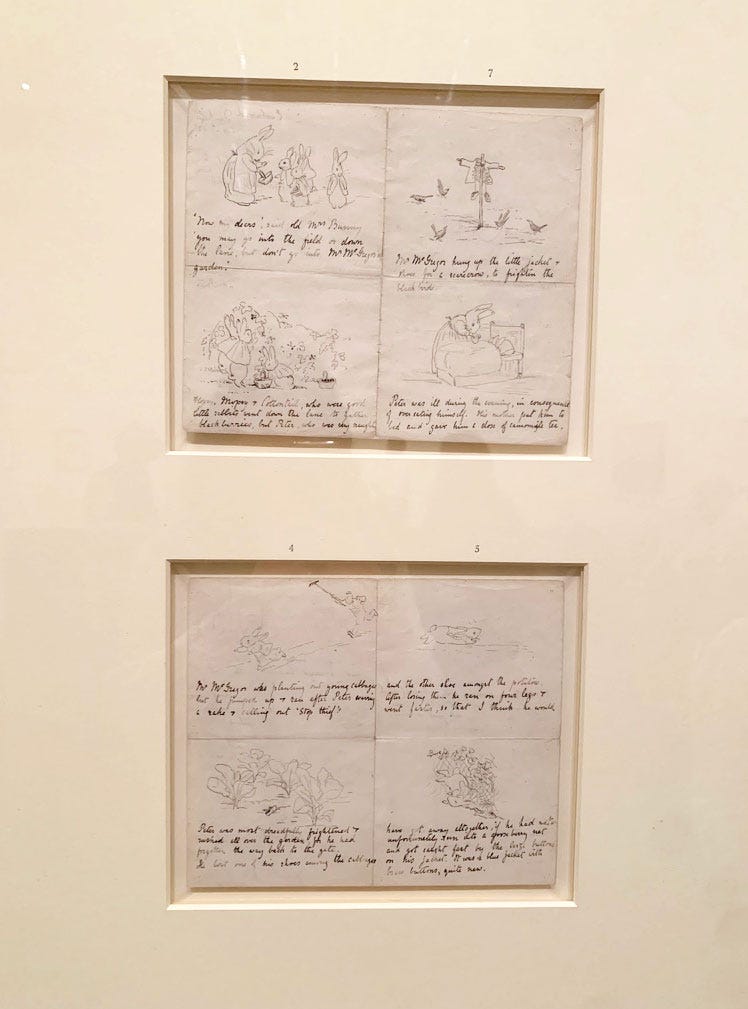 2
7
'Now my dears', said old Mrs Bunny
'you may go into the field or down
the lane, but don't go into Mr McGregor's
garden.'
Flopsy, Mopsy + Cottontail, who were good
little rabbits went down the lane to gather
blackberries, but Peter, who was very naughty
Mr McGregor hung up the little jacket +
shoes for a scarecrow, to frighten the
black birds.
Peter was ill during the evening, in consequence
of over eating himself. His mother put him to
bed and gave him a dose of camomile tea,
4
5
Mr McGregor was planting out young cabbages
but he jumped up + ran after Peter waving
a rake + calling out 'Stop thief'!
Peter was most dreadfully frightened +
rushed all over the garden, for he had
forgotten the way back to the gate.
He lost one of his shoes among the cabbages
and the other shoe amongst the potatoes.
After losing them he ran on four legs +
went faster, so that I think he would
have got away altogether, if he had not
unfortunately run into a gooseberry net
and got caught fast by the large buttons
on his jacket. It was a blue jacket with
brass buttons, quite new.